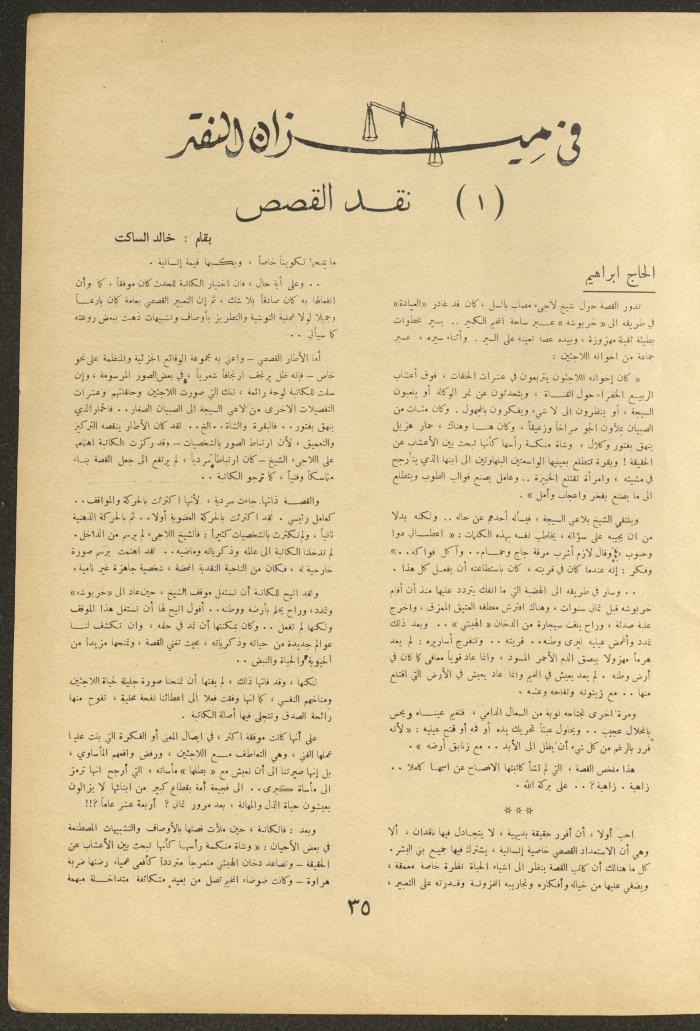 في ميزان النقد
(١) نقد القصص
بقلم : خالد الساكت
الحاج ابراهيم
تدور القصة حول شيخ لاجىء مصاب بالسل ، كان قد غادر «العيادة»
في طريقه الى « خربوشه » عبر ساحة المخيم الكبير .. يسير بخطوات
بطيئة ثقيلة مهزوزة ، وبيده عصا تعينه على السير . وأثناء سيره ، عبر
جماعة من اخوانه اللاجئين :
« كان إخوانه اللاجئون يتربعون في عشرات الحلقات ، فوق أعشاب
الربيع الخضراء حول القناة ، ويتحدثون عن نمر الوكالة أو يلعبون
السيجة ، أو ينظرون الى لا شيء ويفكرون بالمجهول . وكان مئات من
الصبيان يملأون الجو صراخاً وزعيقاً ، وكان هنا وهناك ، حمار هزيل
ينهق بفتور وكلال ، وشاة منكسة رأسها كأنها تبحث بين الأعشاب عن
الحقيقة ! وبقرة تتطلع بعينيها الواسعتين البلهاوتين الى ابنها الذي يتأرجح
في مشيته ، وامرأة تقتلع الخبيزة .. وعامل يصنع قوالب الطوب ويتطلع
الى ما يصنع بفخر واعجاب وأمل » .
ويلتقي الشيخ بلاعبي السيجة ، فيسأله أحدهم عن حاله .. ولكنه بدلا
من ان يجيبه على سؤاله ، يخاطب نفسه بهذه الكلمات : « اعطاني دوا
وحبوب ، وقال لازم أشرب مرقة جاج وحمام .. وآكل فواكه .. »
وفكر : إنه عندما كان في قريته ، كان باستطاعته أن يفعل كل هذا .
.. وسار في طريقه الى الهضبة التي ما انفك يتردد عليها منذ أن أقام
خربوشه قبل ثماني سنوات ، وهناك افترش معطفه العتيق الممزق ، واخرج
علبة صدئة ، وراح يلف سيجارة من الدخان «الهيشي» .. وبعد ذلك
تمدد وأغمض عينيه ليرى وطنه .. قريته .. وتنفرج أساريره : لم يعد
هرماً مهزولا يبصق الدم الأحمر المسود ، وانما عاد قوياً معافى كما كان في
أرض وطنه . لم يعد يعيش في المخيم وانما عاد يعيش في الأرض التي اقتلع
منها .. مع زيتونه وتفاحه وعشبه .
ومرة اخرى تجتاحه نوبة من السعال الدامي ، فتغيم عيناه ويحس
بانحلال عجيب .. ويحاول عبثاً تحريك يده أو فمه أو فتح عينيه : « لأنه
قرر بالرغم من كل شيء أن يظل الى الأبد .. مع زنابق أرضه » .
هذا ملخص القصة ، التي لم تشأ كاتبتها الافصاح عن اسمها كاملا ..
زاهية . زاهية ? .. على بركة الله .
***
احب أولا ، أن أقرر حقيقة بديهية ، لا يتجادل فيها ناقدان ، ألا
وهي أن الاستعداد القصصي خاصية إنسانية ، يشترك فيها جميع بني البشر .
كل ما هنالك أن كاتب القصة ينظر الى اشياء الحياة نظرة خاصة معمقة ،
ويضفي عليها من خياله وأفكاره وتجاريبه المخزونة وقدرته على التعبير ،
ما يمنحها تكويناً خاصاً ، ويكسبها قيمة إنسانية .
.. وعلى أية حال ، فان اختيار الكاتبة للحدث كان موفقاً ، كما وأن
انفعالها به كان صادقاً بلا شك ، ثم إن التعبير القصصي بعامة كان بارعاً
وجميلا لولا عملية التوشية والتطريز بأوصاف وتشبيهات ذهبت ببعض روعته
كما سيأتي ..
أما الأطار القصصي – واعني به مجموعة الوقائع الجزئية والمنظمة على نحو
خاص – فإنه ظل يرتجف ارتجافاً شعرياً ، في بعض الصور المرسومة ، وإن
سلمت للكاتبة لوحة رائعة ، تلك التي صورت اللاجئين وحلقاتهم وعشرات
التفصيلات الاخرى من لاعبي السيجة الى الصبيان الصغار .. فالحمار الذي
ينهق بفتور .. فالبقرة والشاة .. الخ .. لقد كان الأطار ينقصه التركيز
والتعميق ، لأن ارتباط الصور بالشخصيات – وقد ركزت الكاتبة اهتمامها
على اللاجىء الشيخ – كان ارتباطاً سردياً ، لم يرتفع الى جعل القصة بناء
متماسكاً وفنياً ، كما ترجو الكاتبة ..
والقصة ذاتها جاءت سردية ، لأنها اكترثت بالحركة والمواقف ..
كعامل رئيسي . لقد اكترثت بالحركة العضوية أولا .. ثم بالحركة الذهنية
ثانياً ، ولم تكترث بالشخصيات كثيراً : فالشيخ اللاجىء لم يرسم من الداخل .
لم تدخلنا الكاتبة الى عالمه وذكرياته وماضيه .. لقد اهتمت برسم صورة
خارجية له ، فكان من الناحية النقدية المحضة ، شخصية جاهزة غير نامية .
ولقد اتيح للكاتبة أن تستغل موقف الشيخ ، حين عاد الى «خربوشه»
وتمدد ، وراح يحلم بأرضه ووطنه .. أقول اتيح لها أن تستغل هذا الموقف
ولكنها لم تفعل .. وكان بمكنتها أن تمد في حلمه ، وان تكشف لنا
عوالم جديدة من حياته وذكرياته ، بحيث تغني القصة ، وتمنحها مزيداً من
الحيوية والحياة والنبض ..
لكنها ، وقد فاتها ذلك ، لم يفتها أن تمنحنا صورة جليلة لحياة اللاجئين
ومناخهم النفسي ، كما انها وفقت فعلا الى اعطائنا نفحة محلية ، تفوح منها
رائحة الصدق وتتجلى فيها أصالة الكاتبة .
على أنها كانت موفقة اكثر ، في ايصال المعنى أو الفكرة التي بنت عليها
عملها الفني ، وهي التعاطف مع اللاجئين ، ورفض واقعهم المأساوي ،
بل إنها صيرتنا الى أن نعيش مع « بطلها » مأساته ، التي أرجح انها ترمز
الى مأساة كبرى .. الى فجيعة أمة بقطاع كبير من ابنائها لا يزالون
يعيشون حياة الذل والمهانة ، بعد مرور ثماني ? أربعة عشر عاماً ?!!
وبعد : فالكاتبة ، حين ملأت قصتها بالأوصاف والتشبيهات المصطنعة
في بعض الأحيان : « وشاة منكسة رأسها كأنها تبحث بين الأعشاب عن
الحقيقة – وتصاعد دخان الهيشي متعرجاً مترددا كأفعى عمياء رضتها ضربة
هراوة – وكانت ضوضاء المخيم تصل من بعيد متكاثفة متداخلة مبهمة
٣٥